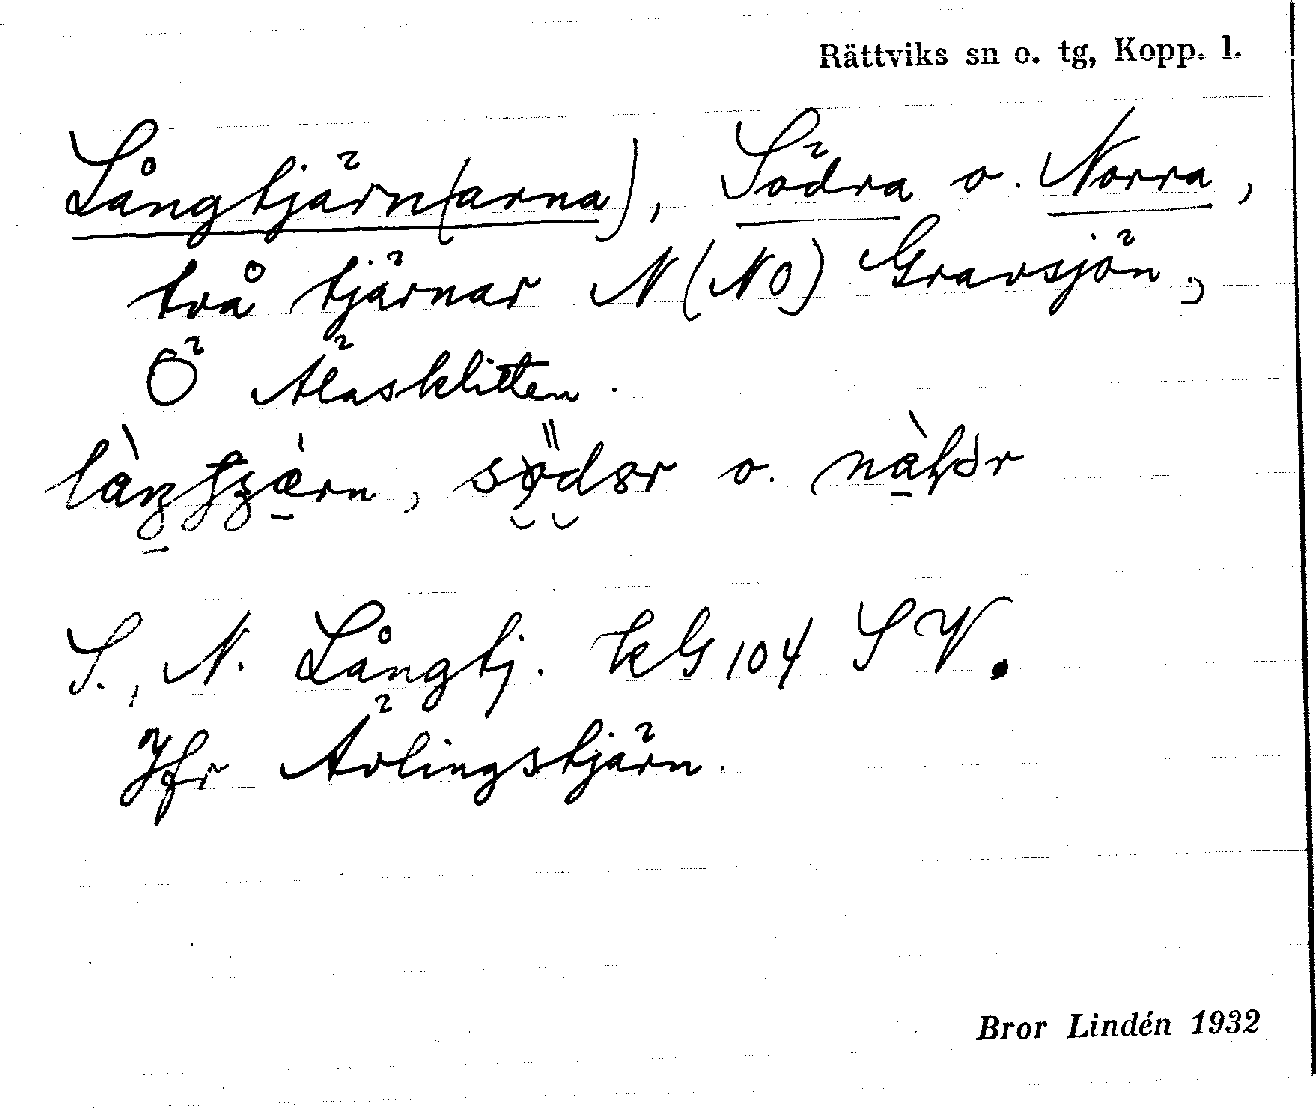 Rättviks sn o. tg, Kopp. l.
Långtjärn(arna), Södra o. Norra,
två tjärnar N (NO) Gravsjön,
Ö Älasklitten.
södər o.
S., N. Långtj. kG 104 SV.
Jfr Ävlingstjärn.
Bror Lindén 1932